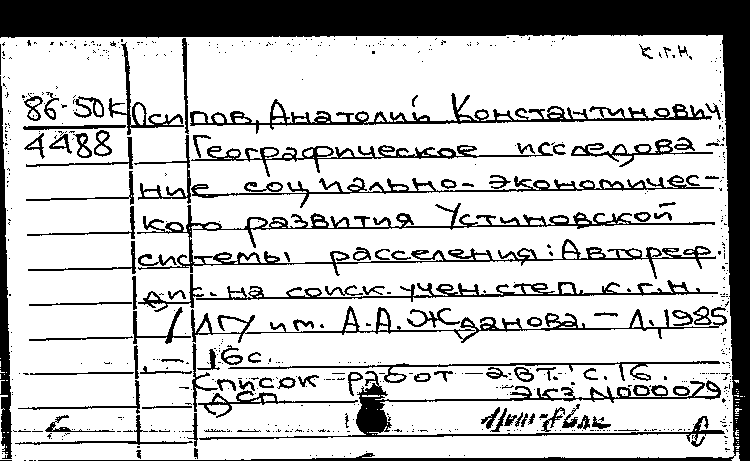 к.г.н.
86-50к Осипов, Анатолий Константинович
4488 Географическое исследова-
ние социально-экономичес-
кого развития Устиновской
системы расселения: Автореф.
дис. на соиск. учен. степ. к.г.н.
/ ЛГУ им. А.А. Жданова. — Л., 1985
. — 16с.
Список работ авт.: с. 16.
ДСП экз. N000079.